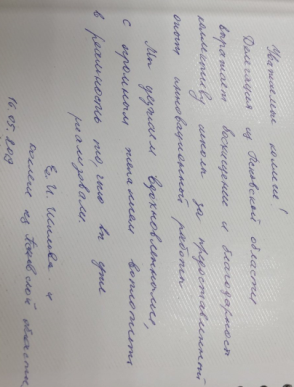 Уважаемые коллеги!
Делегация из Псковской области
выражает восхищение и благодарность
коллективу школы за предоставленный
опыт инновационной работы.
Мы уезжаем вдохновленными,
с огромным желанием воплотить
в реальность то, что вы уже
реализовали.
Е. И. Шилова и
коллеги из Псковской области
16.05.2019